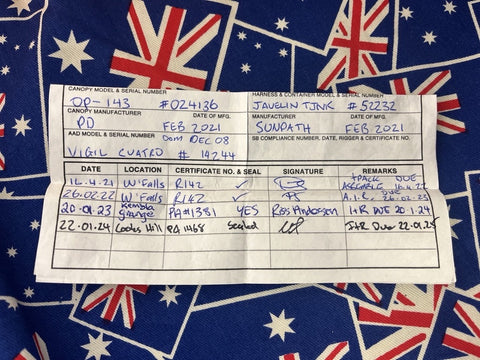 CANOPY MODEL & SERIAL NUMBER HARNESS & CONTAINER MODEL & SERIAL NUMBER
OP-143 #024136 JAVELIN TJNK #52232
CANOPY MANUFACTURER DATE OF MFG. MANUFACTURER DATE OF MFG.
PD FEB 2021 SUNPATH FEB 2021
AAD MODEL & SERIAL NUMBER DOM DEC 08 SB COMPLIANCE NUMBER, DATE, RIGGER & CERTIFICATE NO.
VIGIL CUATRO # 14744
DATE LOCATION CERTIFICATE NO. & SEAL SIGNATURE REMARKS
16.4.21 W'Falls R142 ✓ I PACK DUE
26.02.22 W'Falls R142 ✓ A.I.R. DUE 26.02.23
20.01.23 Kembla Grange PA#1381 YES Ross Anderson I+R DUE 20.1.24
22.01.24 Coobs Hill PA 1468 Sealed I+R Due 22.01.25